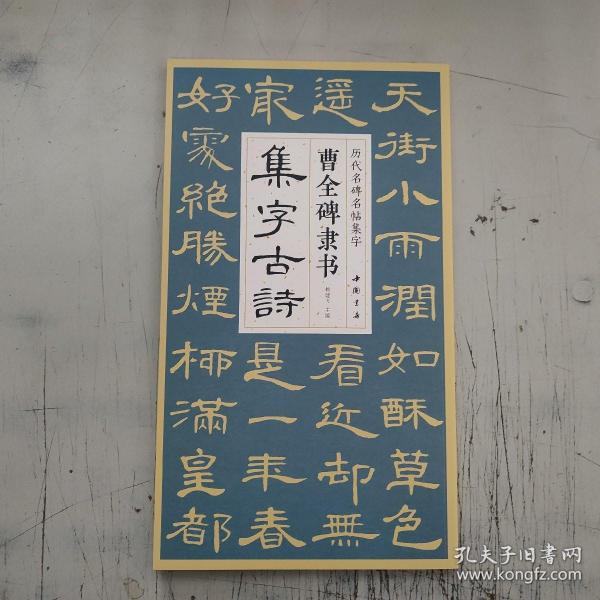 天街小雨潤如酥草色
遥
看近却無
冣
是一年春
好處絶勝煙柳滿皇都
历代名碑名帖集字
曹全碑隶书
集字古詩
主编
中国书店
孔夫子旧书网
www.kongfz.com